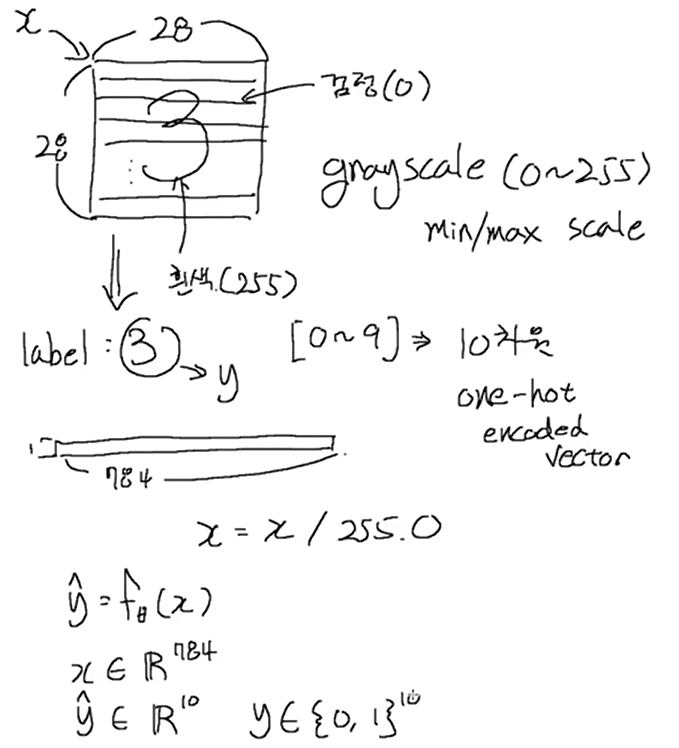 x
28
검정(0)
28
3
grayscale (0~255)
min/max scale
흰색(255)
label : 3 → y
[0~9] ⇒ 10차원
one-hot
encoded
vector
1
784
x = x / 255.0
ŷ = f_θ(x)
x ∈ ℝ^784
ŷ ∈ ℝ^10 y ∈ {0, 1}^10